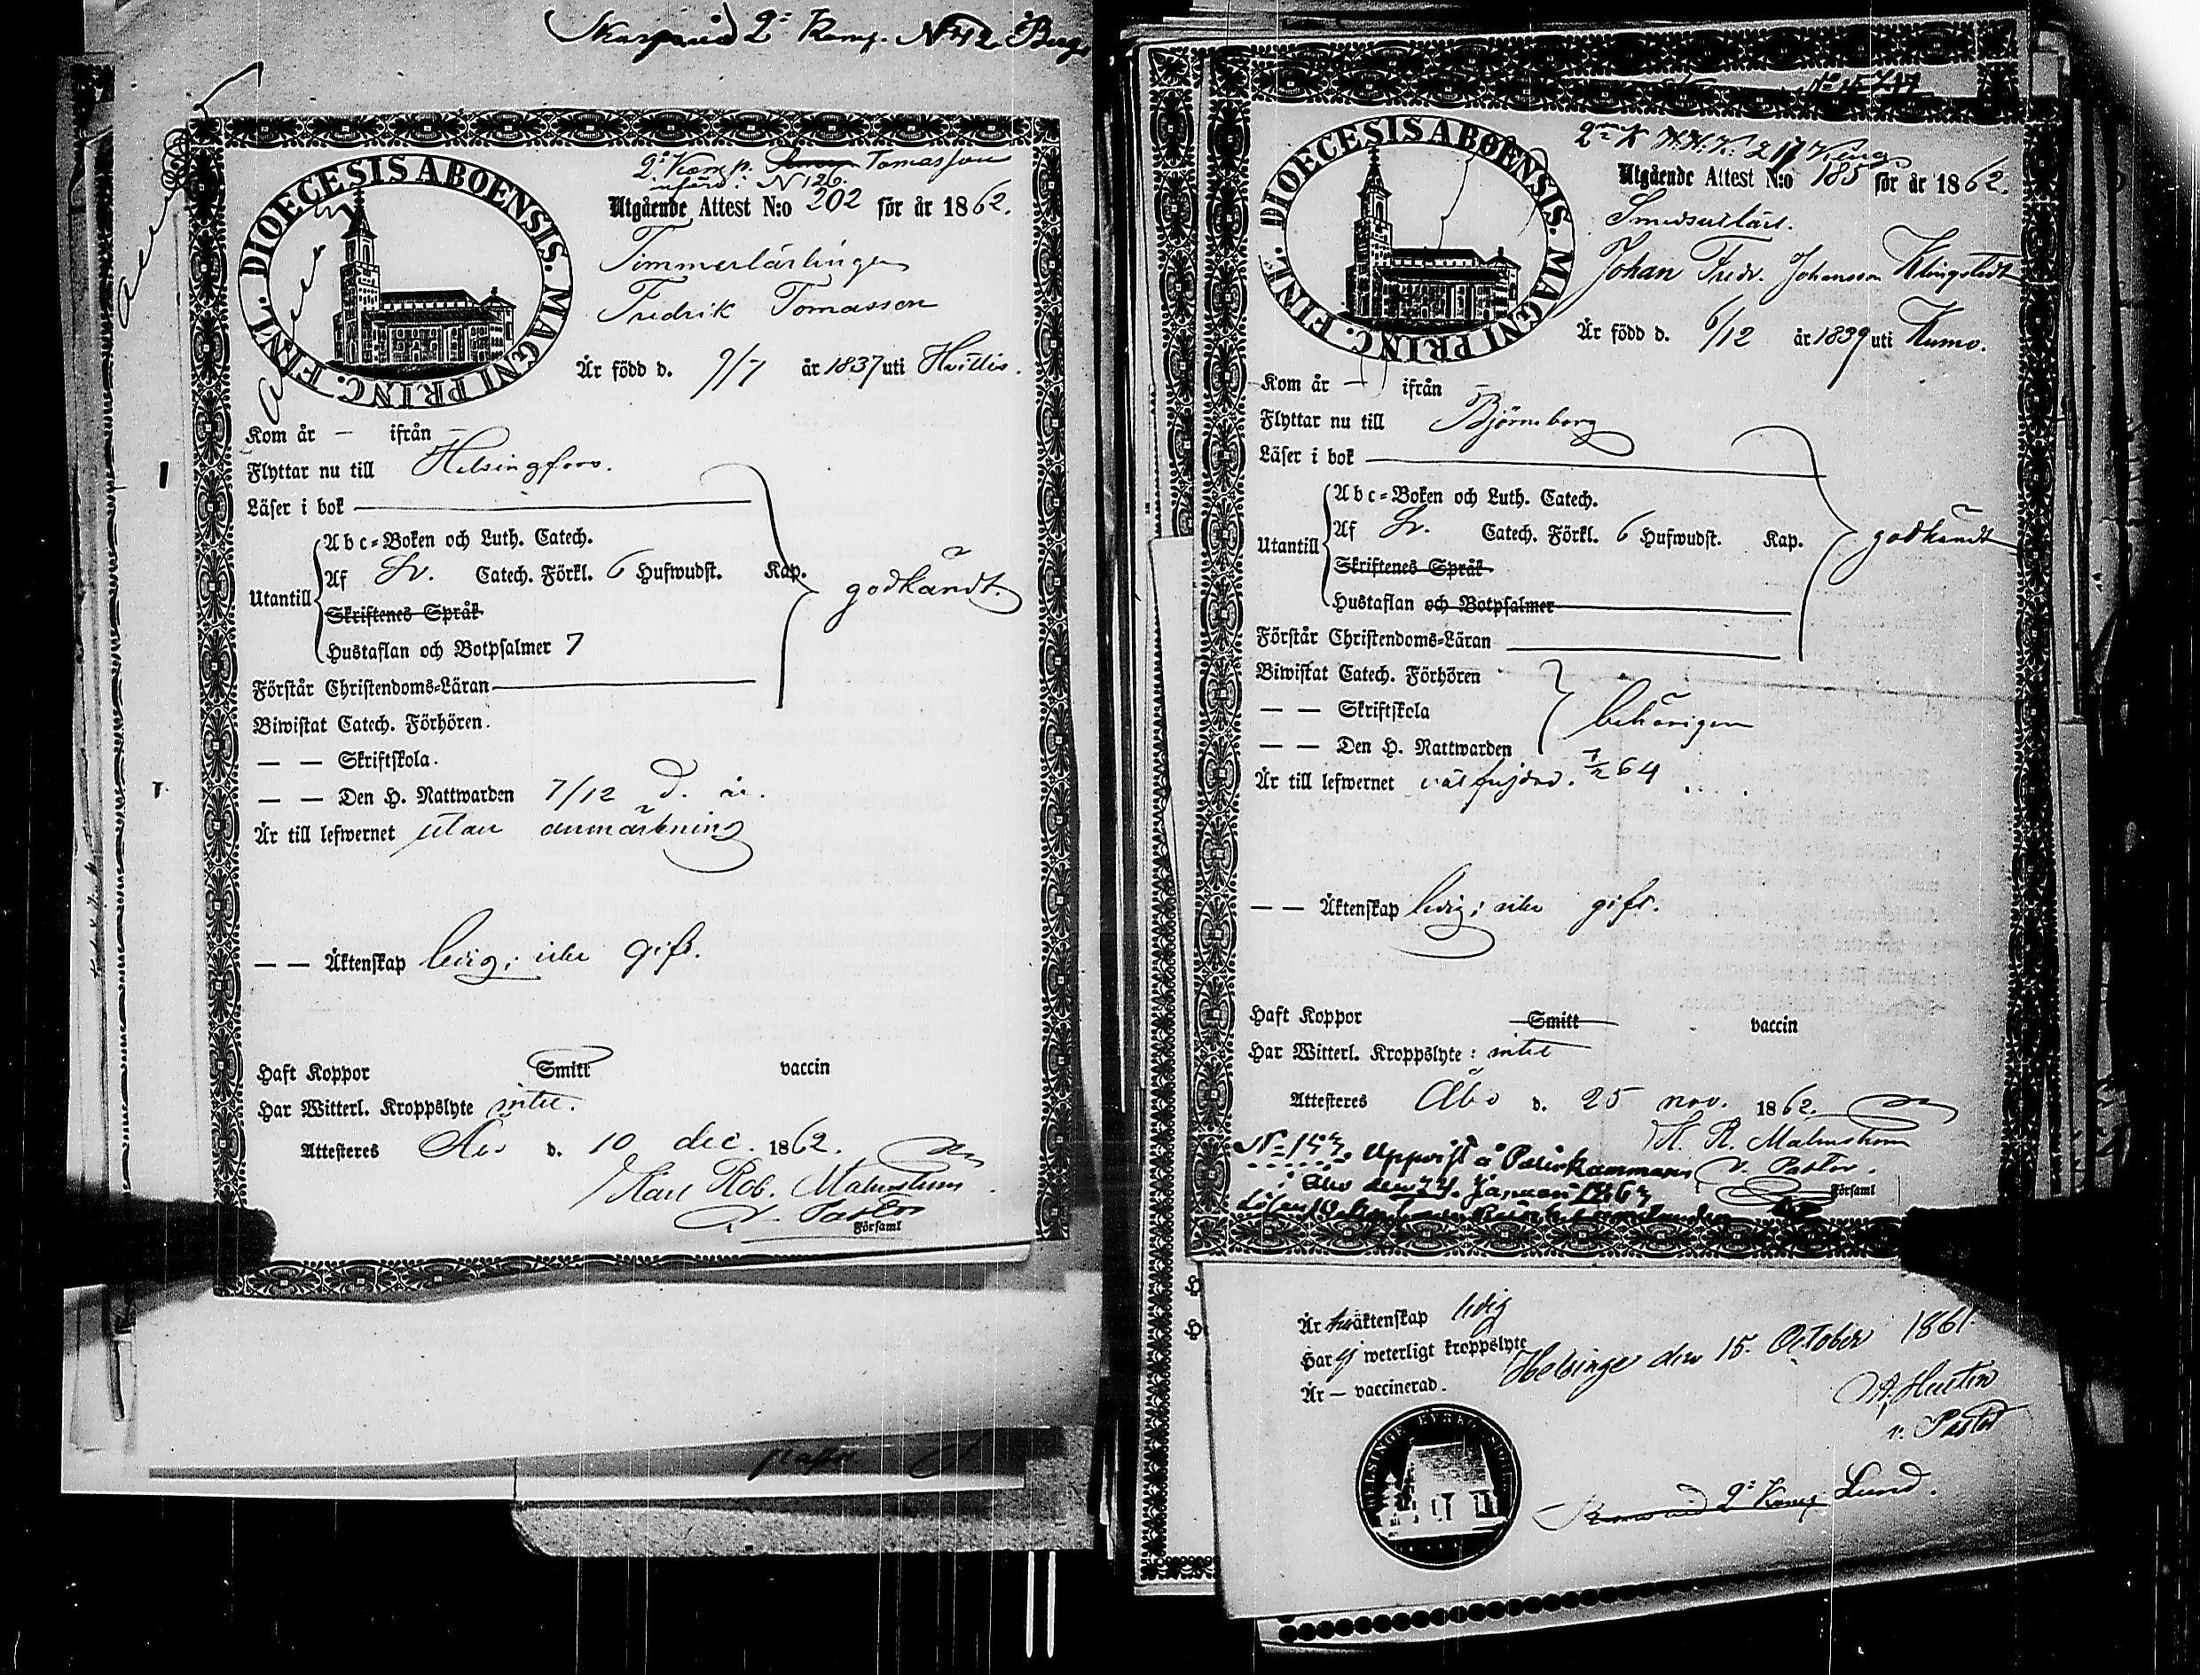 2ª Komp. N 42 Berg
DIOECESIS ABOENSIS. MAGNI PRINC. FINL.
2ª Komp. Tomasson
införd: N 126.
Utgående Attest N:o 202 för år 1862.
Timmerlärlingen
Fredrik Tomasson
Är född d. 9/7 år 1837 uti Hvittis.
Kom år — ifrån —
Flyttar nu till Helsingfors.
Läser i bok
Abc-Boken och Luth. Catech.
Utantill Af Sv. Catech. Förkl. 6 Hufwudst. Kap. godkändt.
Skriftenes Språk
Hustaflan och Botpsalmer 7
Förstår Christendoms-Läran
Biwistat Catech. Förhören.
— — Skriftskola.
— — Den H. Nattwarden 7/12 d. år.
Är till lefwernet utan anmärkning
— — Äktenskap ledig; icke gift.
Haft Koppor Smitt vaccin
Har Witterl. Kroppslyte intet.
Attesteras Åbo d. 10 dec. 1862.
Karl Rob. Malmström
v. Pastor
Församl
DIOECESIS ABOENSIS. MAGNI PRINC. FINL.
Utgående Attest N:o 185 för år 1862.
Johan Fredr. Johansson Klingstedt
Är född d. 6/12 år 1839 uti Kumo.
Kom år — ifrån
Flyttar nu till Björneborg
Läser i bok
Abc-Boken och Luth. Catech.
Utantill Af Sv. Catech. Förkl. 6 Hufwudst. Kap. godkändt
Skriftenes Språk
Hustaflan och Botpsalmer
Förstår Christendoms-Läran
Biwistat Catech. Förhören
— — Skriftskola behörigen
— — Den H. Nattwarden
Är till lefwernet välfrejdad.
— — Äktenskap ledig; icke gift.
Haft Koppor Smitt vaccin
Har Witterl. Kroppslyte: intet
Attesteras Åbo d. 25 nov. 1862.
K. R. Malmström
v. Pastor.
Församl
Uppvist å Poliskammaren
Åbo den Januari 1863
Är äktenskap ledig
Har ej weterligt kroppslyte
Är — vaccinerad.
Helsinge den 15. October 1861.
v. Pastor
HELSINGE KYRKO
2ª Komp. Lund.